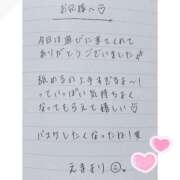 お兄様へ♡
今日は遊びに来てくれて
ありがとうございました
舐めるの上手すぎるよ〜!
っていっぱい気持ちよく
なってもらえて嬉しい♡
バスケしたくなったね!!
えままり